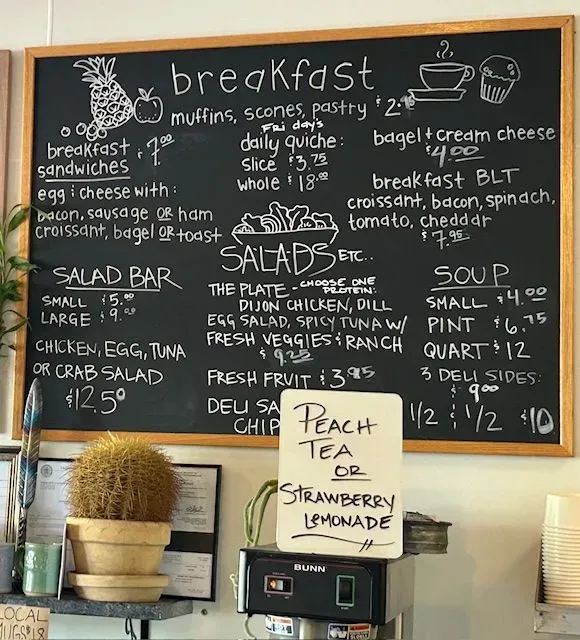 breakfast
muffins, scones, pastry $2.95
breakfast sandwiches $7.00
egg & cheese with:
bacon, sausage OR ham
croissant, bagel OR toast
Friday's
daily quiche:
slice $3.75
whole $18.00
bagel + cream cheese
$4.00
breakfast BLT
croissant, bacon, spinach,
tomato, cheddar
$7.95
SALADS ETC..
SALAD BAR
SMALL $5.00
LARGE $9.00
CHICKEN, EGG, TUNA
OR CRAB SALAD
$12.50
THE PLATE - CHOOSE ONE
PROTEIN:
DIJON CHICKEN, DILL
EGG SALAD, SPICY TUNA W/
FRESH VEGGIES & RANCH
$9.25
FRESH FRUIT $3.95
DELI SA
CHIP
SOUP
SMALL $4.00
PINT $6.75
QUART $12
3 DELI SIDES:
$9.00
1/2 & 1/2 $10
PEACH
TEA
OR
STRAWBERRY
LEMONADE
BUNN
LOCAL
MUGS $18